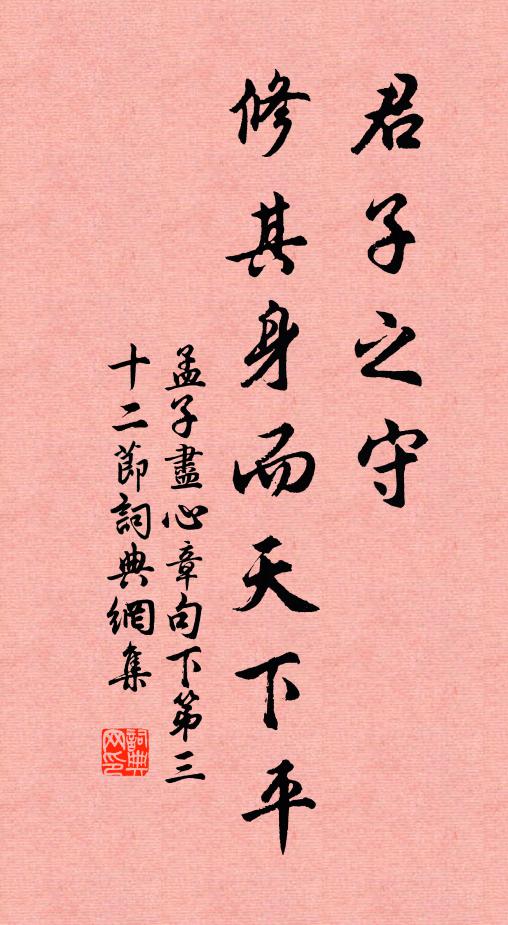 君子之守
修其身而天下平
孟子盡心章句下第三
十二節詞典網集
詞典
网印